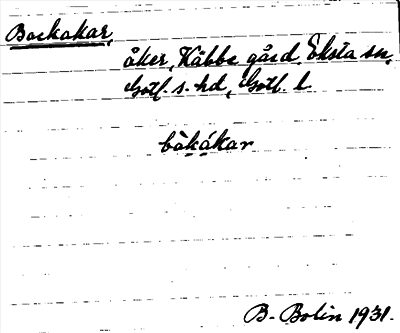 Bockakar,
åker, Kåbbe gård, Eksta sn,
Gotl. s. hd, Gotl. l
båkákar
B. Bolin 1931.